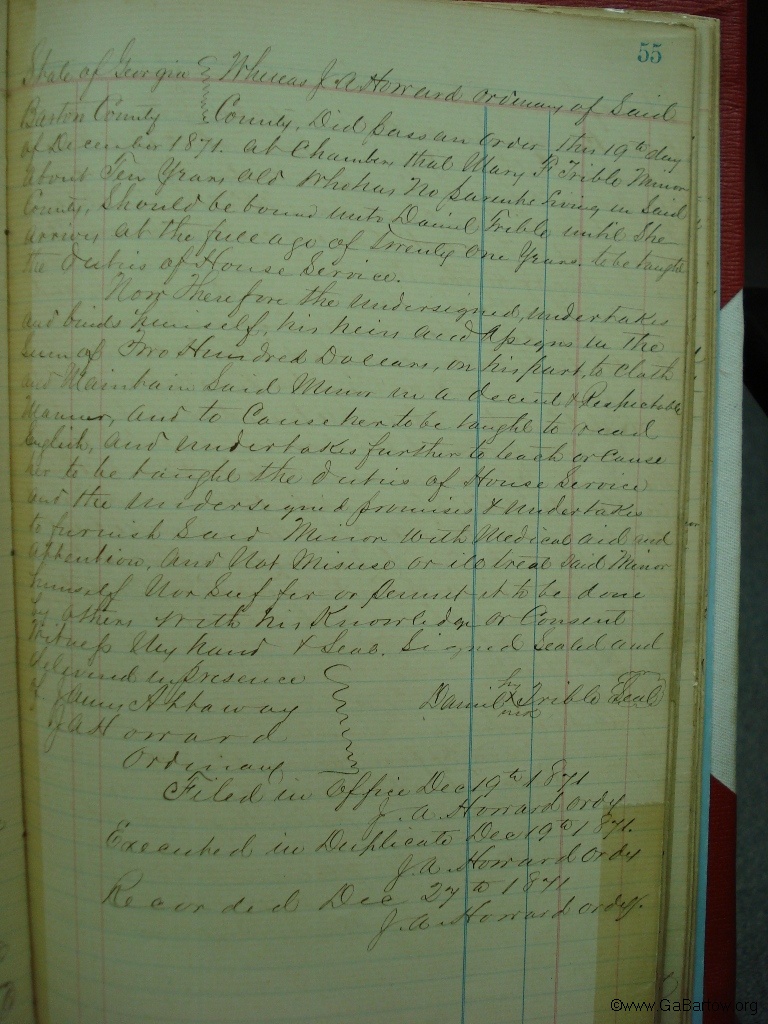 55
State of Georgia Whereas J. A. Howard ordinary of Said
Barton County County, Did pass an order this 19th day
of December 1871. at Chambers that Mary F Trible Minor
about Ten Years old Who has No parents living in Said
County, Should be bound unto Daniel Trible until She
arrives at the full age of Twenty One Years. to be taught
the duties of House Service.
Now Therefore the undersigned, undertakes
and binds himself, his heirs and Assigns in the
Sum of Two Hundred Dollars, on his part, to Cloth
and Maintain Said Minor in a decent & Respectable
Manner, and to Cause her to be taught to read
English, and undertakes further to teach or cause
her to be taught the duties of House Service
and the undersigned promises & undertakes
to furnish Said Minor with Medical aid and
Attention, and Not Misuse or ill treat Said Minor
himself Nor Suffer or permit it to be done
by others with his Knowledge or Consent
Witness My hand & Seal. Signed Sealed and
delivered in presence
Attaway Daniel his X mark Trible Seal
J A Howard
Ordinary
Filed in Office Dec 19th 1871
J. A. Howard ordy
Executed in Duplicate Dec 19th 1871.
J. A. Howard Ordy
Recorded Dec 27th 1871
J. A. Howard ordy.
©www.GaBartow.org